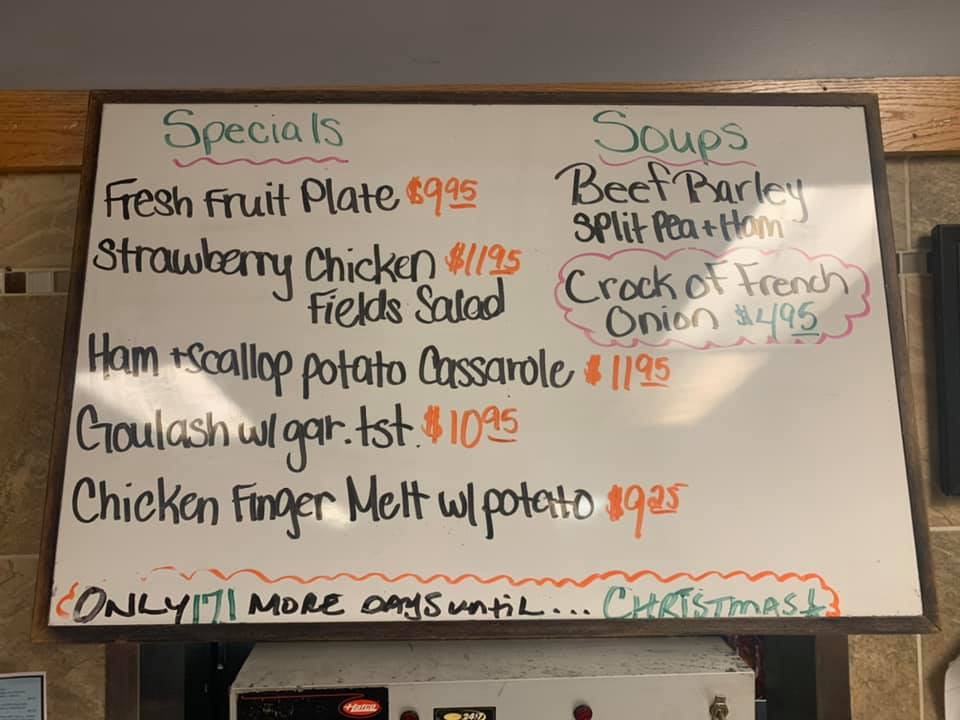 Specials
Fresh Fruit Plate $9.95
Strawberry Chicken $11.95
Fields Salad
Ham + Scallop potato Cassarole $11.95
Goulash w/ gar. tst. $10.95
Chicken Finger Melt w/ potato $9.25
Soups
Beef Barley
Split Pea + Ham
Crock of French
Onion $4.95
ONLY 171 MORE DAYS until... CHRISTMAS!
Hatco
24/7